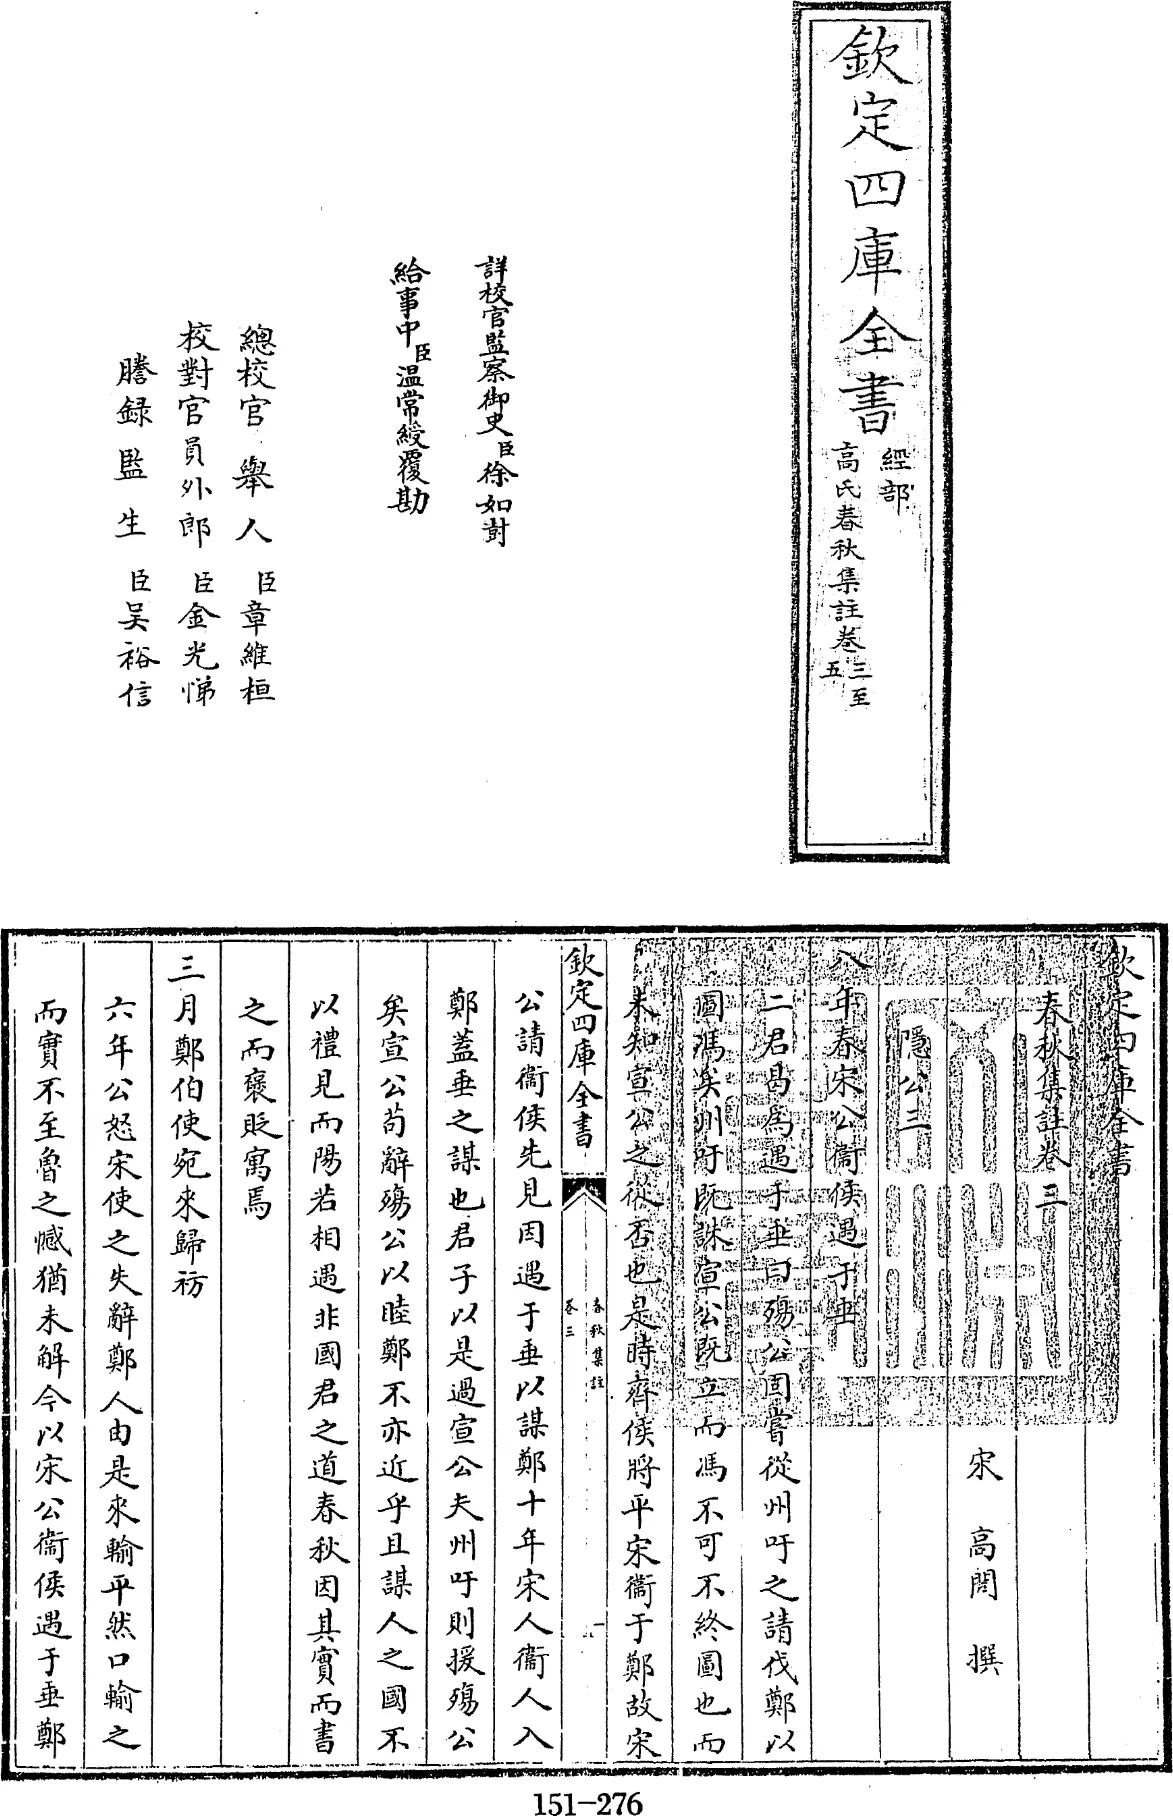 欽定四庫全書
經部
高氏春秋集註卷三至五
詳校官監察御史臣徐如澍
給事中臣溫常綬覆勘
總校官舉人臣章維桓
校對官員外郎臣金光悌
謄錄監生臣吳裕信
欽定四庫全書
春秋集註卷三
宋高閌撰
隱公三
八年春宋公衞侯遇于垂
二君曷爲遇于垂曰殤公固嘗從州吁之請伐鄭以
圖馮矣州吁既誅宣公既立而馮不可不終圖也而
未知宣公之從否也是時齊侯將平宋衞于鄭故宋
欽定四庫全書
春秋集註
卷三
一
公請衞侯先見因遇于垂以謀鄭十年宋人衞人入
鄭蓋垂之謀也君子以是過宣公夫州吁則援殤公
矣宣公苟辭殤公以睦鄭不亦近乎且謀人之國不
以禮見而陽若相遇非國君之道春秋因其實而書
之而褒貶寓焉
三月鄭伯使宛來歸祊
六年公怒宋使之失辭鄭人由是來輸平然口輸之
而實不至魯之憾猶未解今以宋公衞侯遇于垂鄭
151-276